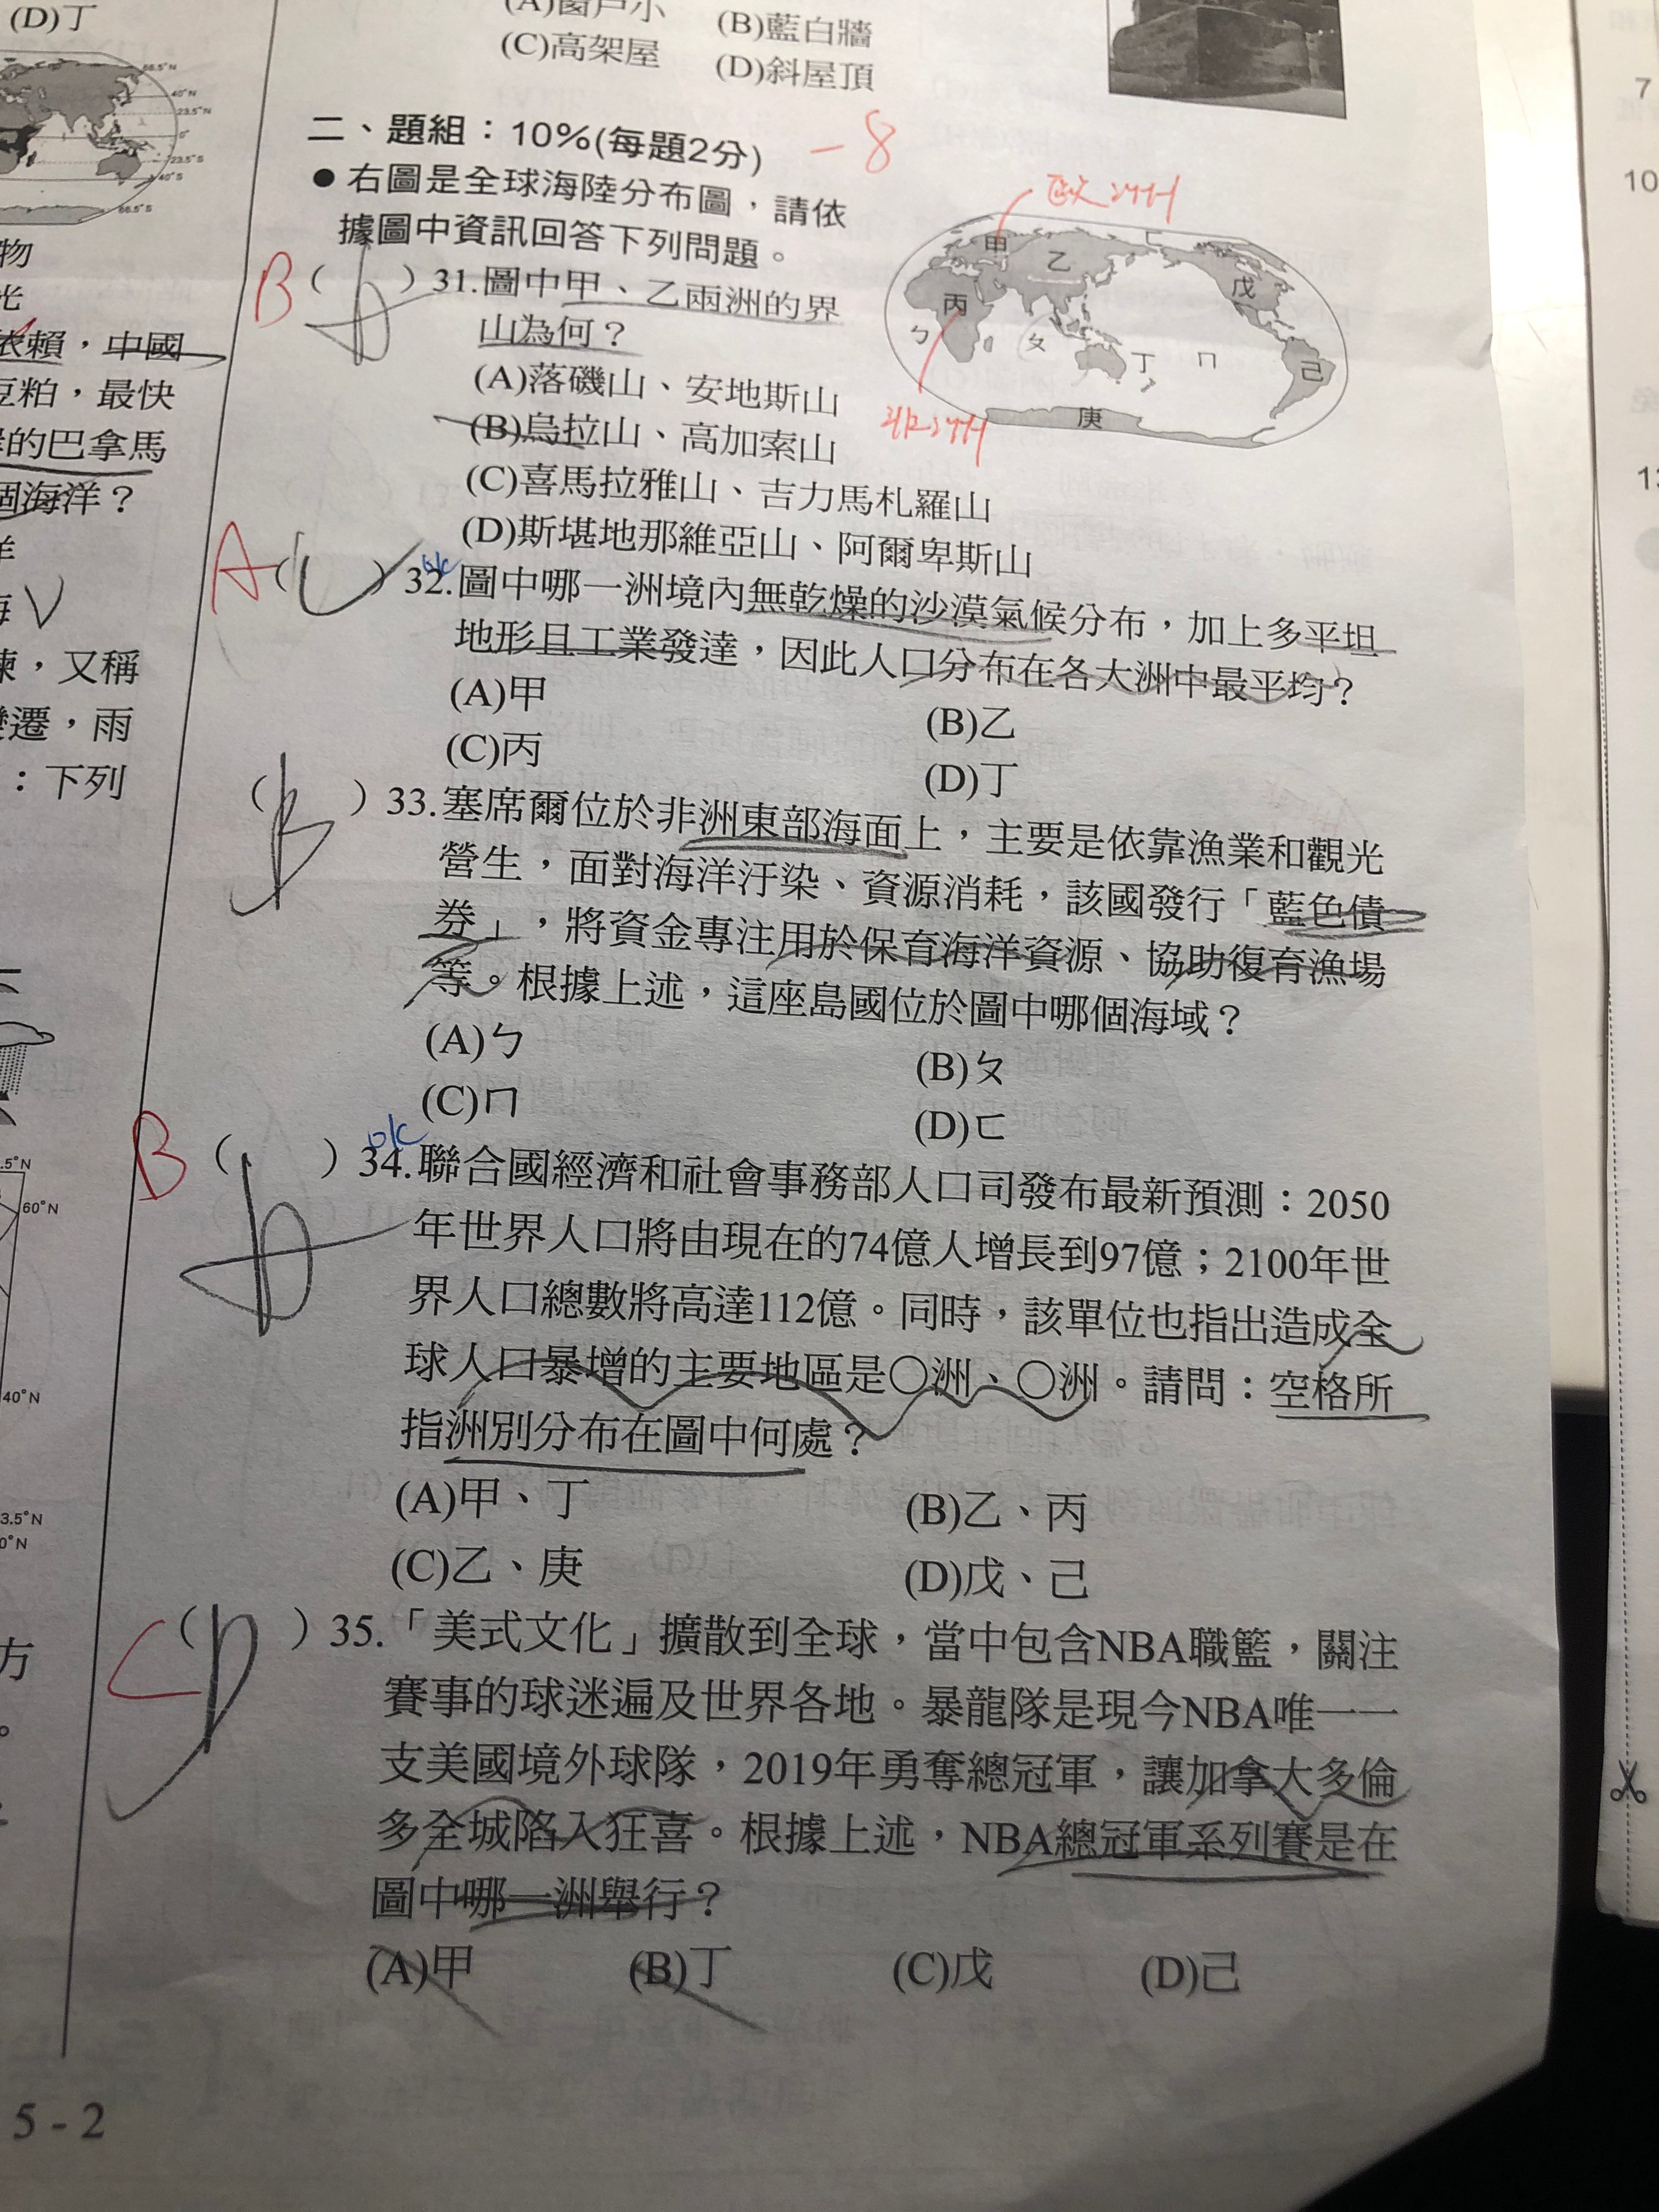 (D)丁
66.5°N
40°N
23.5°N
0°
23.5°S
40°S
66.5°S
物
光
依賴，中國
豆粕，最快
的巴拿馬
個海洋？
洋
海 V
，又稱
遷，雨
：下列
.5°N
60°N
40°N
3.5°N
0°N
方
。
5-2
(A)窗戶小
(B)藍白牆
(C)高架屋
(D)斜屋頂
二、題組：10%(每題2分) -8
●右圖是全球海陸分布圖，請依
據圖中資訊回答下列問題。
甲
乙
丙
丁
戊
己
庚
ㄅ
ㄆ
ㄇ
ㄈ
B ( D ) 31.圖中甲、乙兩洲的界
山為何？
(A)落磯山、安地斯山
(B)烏拉山、高加索山
(C)喜馬拉雅山、吉力馬札羅山
(D)斯堪地那維亞山、阿爾卑斯山
A ( ) 32.圖中哪一洲境內無乾燥的沙漠氣候分布，加上多平坦
ok
地形且工業發達，因此人口分布在各大洲中最平均？
(A)甲
(B)乙
(C)丙
(D)丁
( B ) 33.塞席爾位於非洲東部海面上，主要是依靠漁業和觀光
營生，面對海洋汙染、資源消耗，該國發行「藍色債
券」，將資金專注用於保育海洋資源、協助復育漁場
等。根據上述，這座島國位於圖中哪個海域？
(A)ㄅ
(B)ㄆ
(C)ㄇ
(D)ㄈ
ok
B ( D ) 34.聯合國經濟和社會事務部人口司發布最新預測：2050
年世界人口將由現在的74億人增長到97億；2100年世
界人口總數將高達112億。同時，該單位也指出造成全
球人口暴增的主要地區是○洲、○洲。請問：空格所
指洲別分布在圖中何處？
(A)甲、丁
(B)乙、丙
(C)乙、庚
(D)戊、己
C ( D ) 35.「美式文化」擴散到全球，當中包含NBA職籃，關注
賽事的球迷遍及世界各地。暴龍隊是現今NBA唯一一
支美國境外球隊，2019年勇奪總冠軍，讓加拿大多倫
多全城陷入狂喜。根據上述，NBA總冠軍系列賽是在
圖中哪一洲舉行？
(A)甲
(B)丁
(C)戊
(D)己
7
10